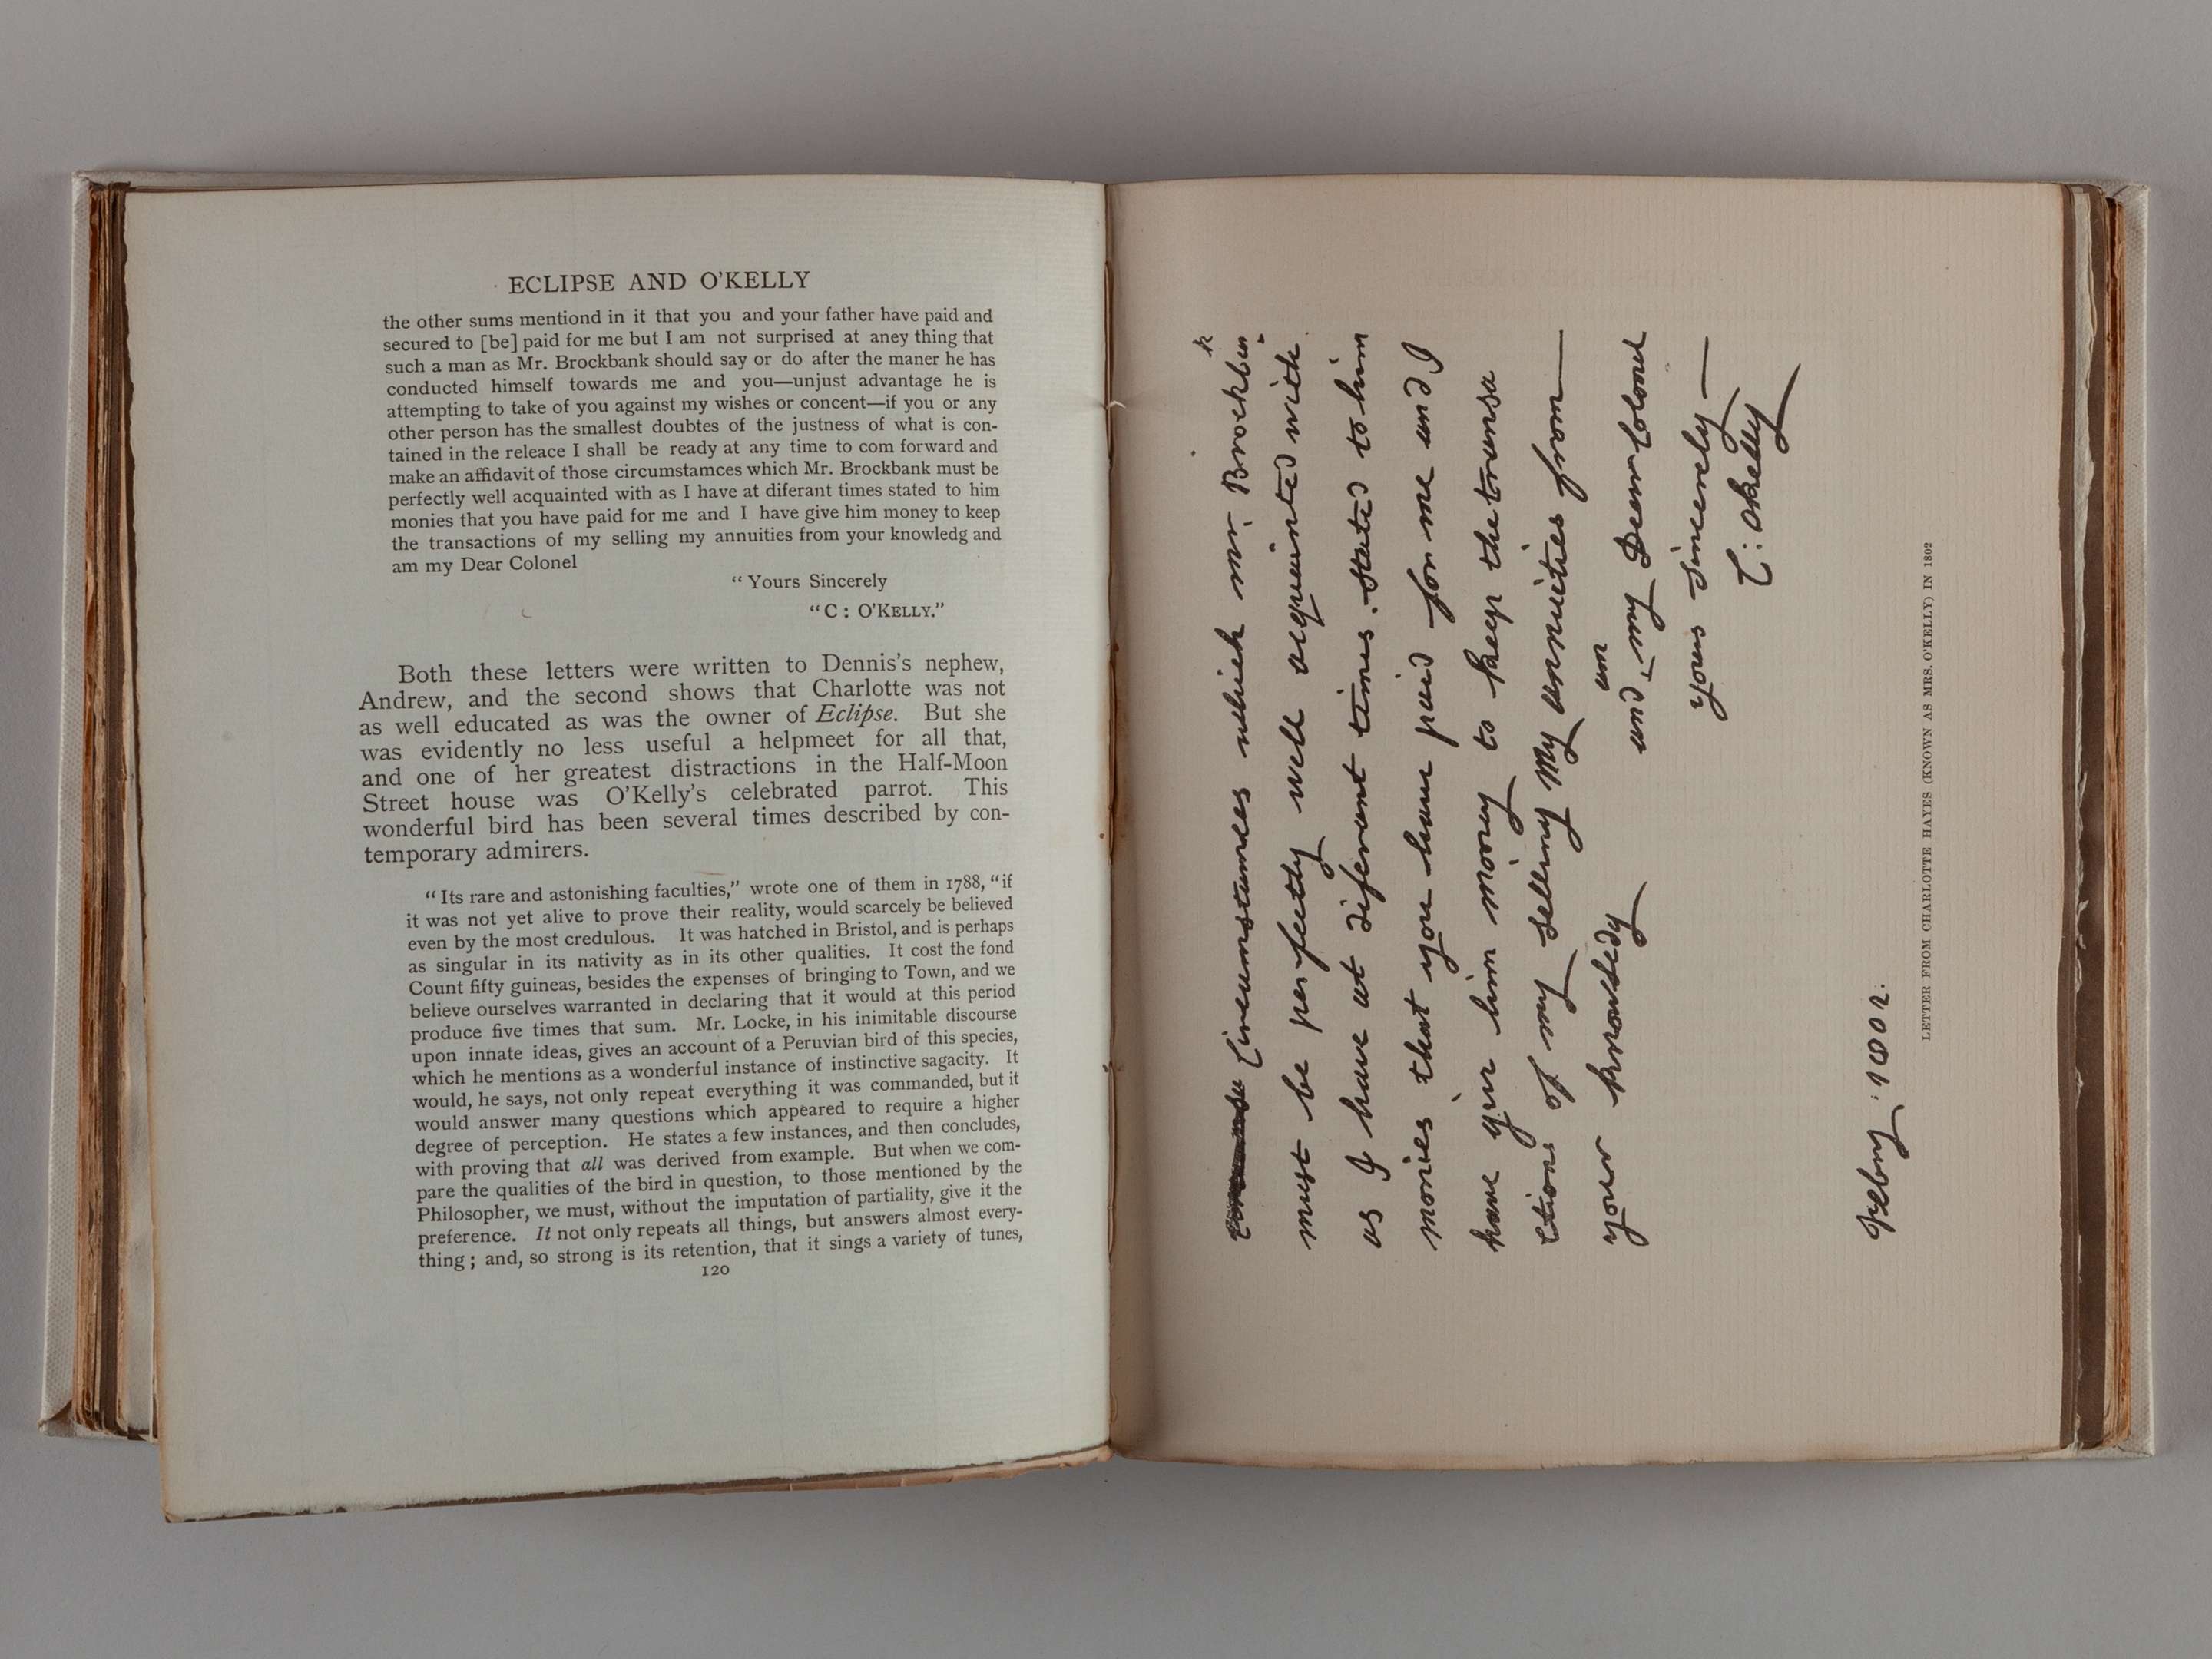 ECLIPSE AND O'KELLY
the other sums mentiond in it that you and your father have paid and
secured to [be] paid for me but I am not surprised at aney thing that
such a man as Mr. Brockbank should say or do after the maner he has
conducted himself towards me and you—unjust advantage he is
attempting to take of you against my wishes or concent—if you or any
other person has the smallest doubtes of the justness of what is con-
tained in the releace I shall be ready at any time to com forward and
make an affidavit of those circumstamces which Mr. Brockbank must be
perfectly well acquainted with as I have at diferant times stated to him
monies that you have paid for me and I have give him money to keep
the transactions of my selling my annuities from your knowledg and
am my Dear Colonel
"Yours Sincerely
"C: O'KELLY."
Both these letters were written to Dennis's nephew,
Andrew, and the second shows that Charlotte was not
as well educated as was the owner of Eclipse. But she
was evidently no less useful a helpmeet for all that,
and one of her greatest distractions in the Half-Moon
Street house was O'Kelly's celebrated parrot. This
wonderful bird has been several times described by con-
temporary admirers.
"Its rare and astonishing faculties," wrote one of them in 1788, "if
it was not yet alive to prove their reality, would scarcely be believed
even by the most credulous. It was hatched in Bristol, and is perhaps
as singular in its nativity as in its other qualities. It cost the fond
Count fifty guineas, besides the expenses of bringing to Town, and we
believe ourselves warranted in declaring that it would at this period
produce five times that sum. Mr. Locke, in his inimitable discourse
upon innate ideas, gives an account of a Peruvian bird of this species,
which he mentions as a wonderful instance of instinctive sagacity. It
would, he says, not only repeat everything it was commanded, but it
would answer many questions which appeared to require a higher
degree of perception. He states a few instances, and then concludes,
with proving that all was derived from example. But when we com-
pare the qualities of the bird in question, to those mentioned by the
Philosopher, we must, without the imputation of partiality, give it the
preference. It not only repeats all things, but answers almost every-
thing; and, so strong is its retention, that it sings a variety of tunes,
120
Circumstances which Mr. Brockbank
must be perfectly well acquainted with
as I have at diferant times stated to him
monies that you have paid for me and I
have give him money to keep the transa
ctions of my selling my annuities from
your knowledg and am my Dear Colonel
yours Sincerely
C: OKelly
Febry 1802.
LETTER FROM CHARLOTTE HAYES (KNOWN AS MRS. O'KELLY) IN 1802